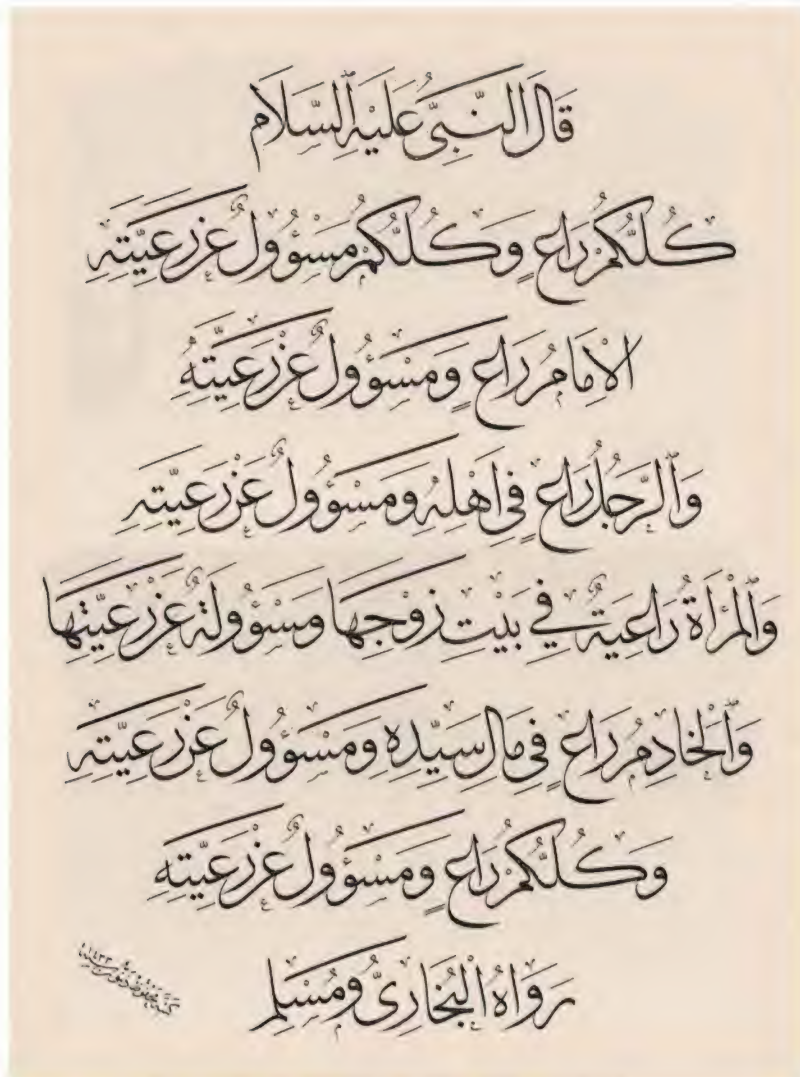 قَالَ النَّبِيُّ عَلَيْهِ السَّلَام
كُلُّكُمْ رَاعٍ وَكُلُّكُمْ مَسْؤُولٌ عَنْ رَعِيَّتِهِ
الْإِمَامُ رَاعٍ وَمَسْؤُولٌ عَنْ رَعِيَّتِهِ
وَالرَّجُلُ رَاعٍ فِي أَهْلِهِ وَمَسْؤُولٌ عَنْ رَعِيَّتِهِ
وَالْمَرْأَةُ رَاعِيَةٌ فِي بَيْتِ زَوْجِهَا وَمَسْؤُولَةٌ عَنْ رَعِيَّتِهَا
وَالْخَادِمُ رَاعٍ فِي مَالِ سَيِّدِهِ وَمَسْؤُولٌ عَنْ رَعِيَّتِهِ
وَكُلُّكُمْ رَاعٍ وَمَسْؤُولٌ عَنْ رَعِيَّتِهِ
رَوَاهُ الْبُخَارِيُّ وَمُسْلِم